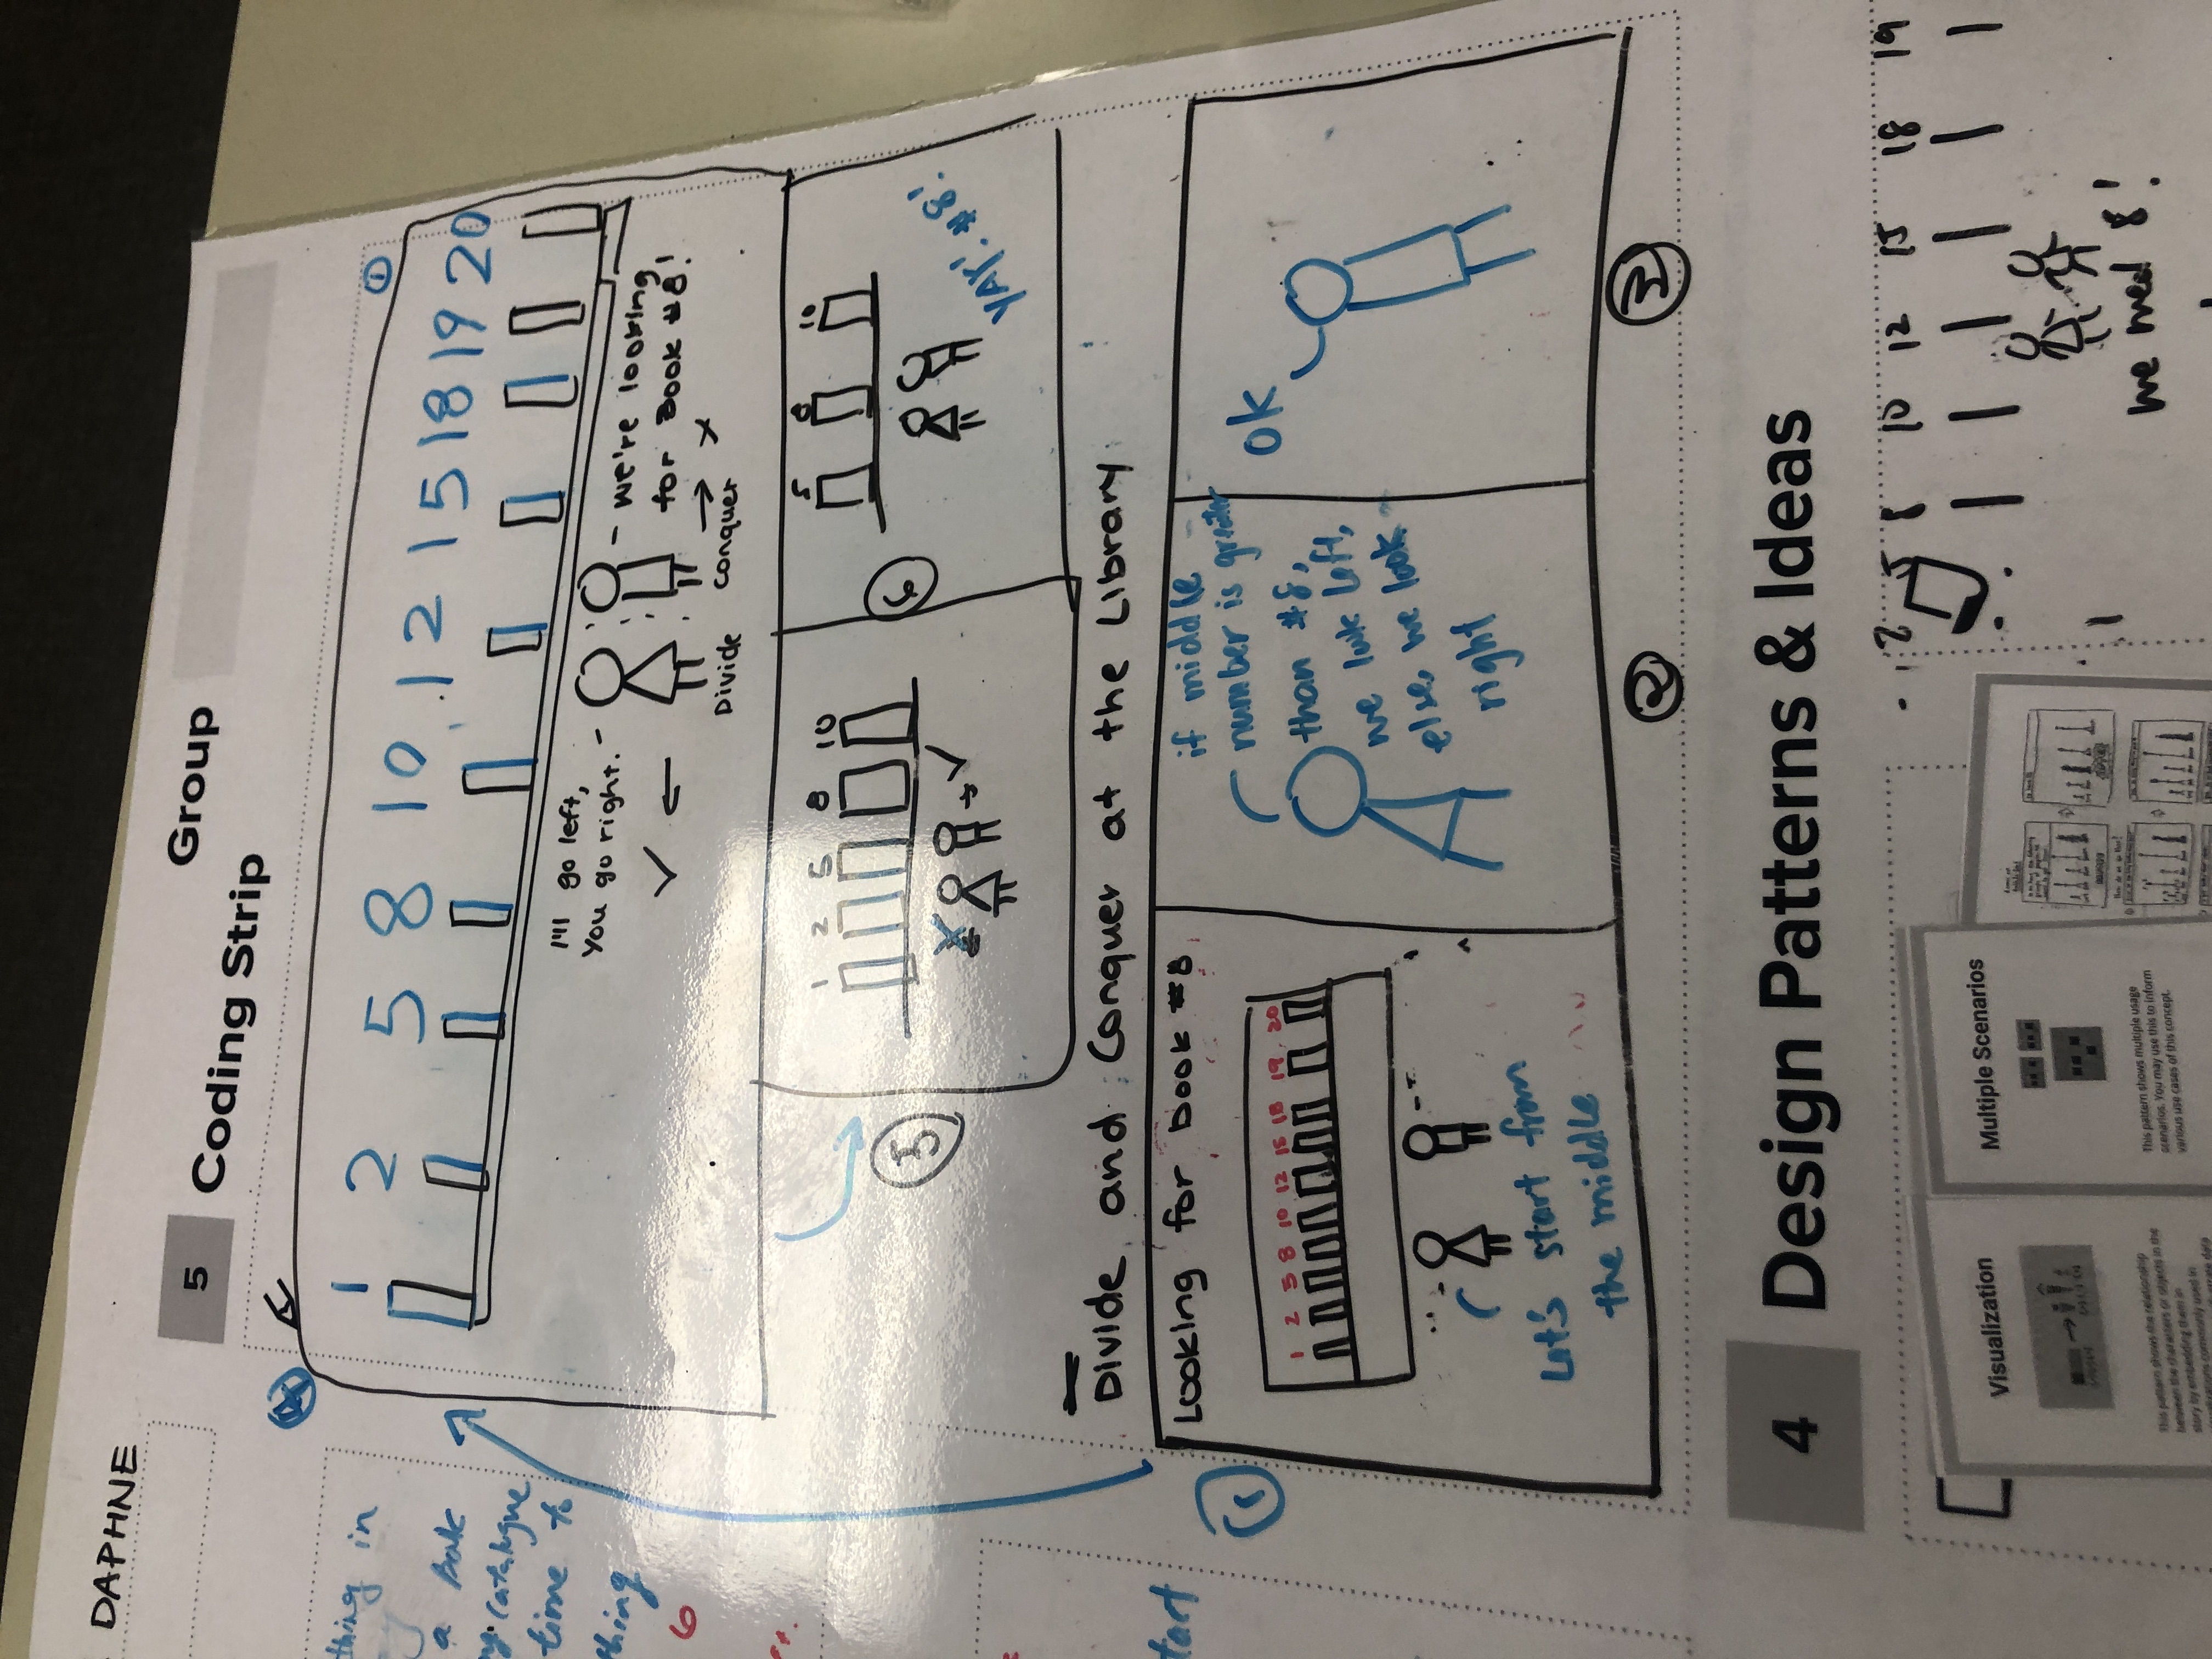 DAPHNE
Group
5
Coding Strip
4
thing in
a book
catalogue
time to
thing
6
tart
1 2 5 8 10 12 15 18 19 20
1
I'll go left,
You go right.
we're looking
for Book #8!
Divide
Conquer
5
1 2 5 8 10
6
5 8 10
YAY! #8!
Divide and Conquer at the Library
1
Looking for book #8
1 2 5 8 10 12 15 18 19 20
Let's start from
the middle
if middle
number is greater
than #8,
we look left,
else, we look
right
OK
2
3
4
Design Patterns & Ideas
2 5 8 10 12 15 18 19
we need 8!
Visualization
This pattern shows the relationship
between the characters or objects in the
story by embedding them in
visualizations commonly used in
Multiple Scenarios
This pattern shows multiple usage
scenarios. You may use this to inform
various use cases of this concept.